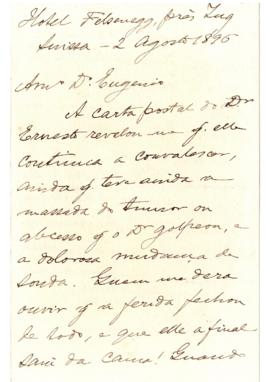 Hotel Felsenegg, près Zug
Suissa – 2 Agosto 1896
Amº Dr. Eugenio
A carta postal do Dr
Ernesto revelou-me q. elle
continua a convalescer,
ainda q. teve ainda a
massada do tumor ou
abcesso q o Dr golpeou, e
a dolorosa mudança da
sonda. Quem me dera
ouvir q a ferida fechou
de todo, e que elle afinal
saiu da cama! Quando